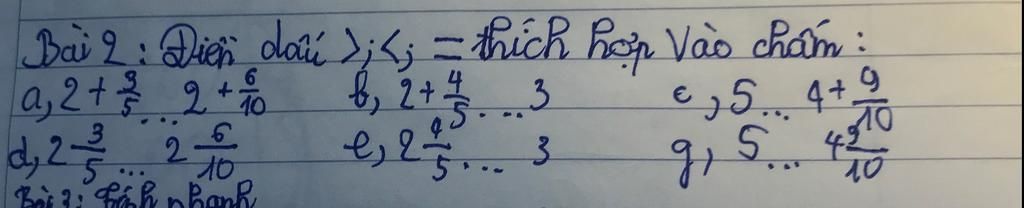 Bài 2: Điền dấu >;<; = thích hợp vào chấm:
a, 2 + 3/5 ... 2 + 6/10 b, 2 + 4/5 ... 3 c, 5 ... 4 + 9/10
d, 2 3/5 ... 2 6/10 e, 2 4/5 ... 3 g, 5 ... 4 9/10
Bài 3: Tính nhanh